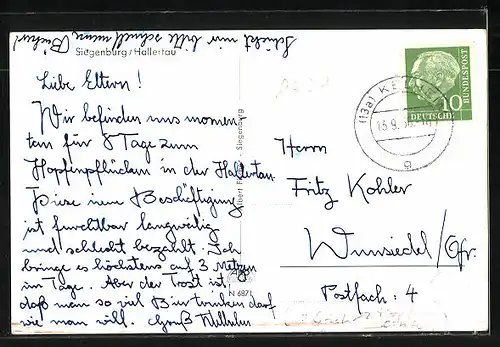 Schickt mir bitte schnell meine Bücher!
Siegenburg/Hallertau
Liebe Eltern!
Wir befinden uns momen-
tan für 8 Tage zum
Hopfenpflücken in der Hallertau
Diese Beschäftigung
ist furchtbar langweilig
und schlecht bezahlt. Ich
bringe es höchstens auf 3 Metzen
im Tage. Aber der Trost ist
daß man so viel Bier trinken darf
wie man will. Gruß Wilhelm
Siegenburg
N 6871
10
DEUTSCHE
BUNDESPOST
(13a)
15.9.
a
Herrn
Fritz Kohler
Wunsiedel/Ofr.
Postfach: 4